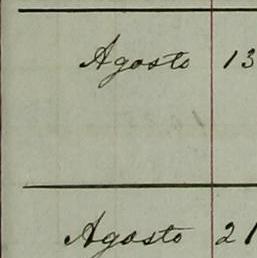 Agosto 13
Agosto 21